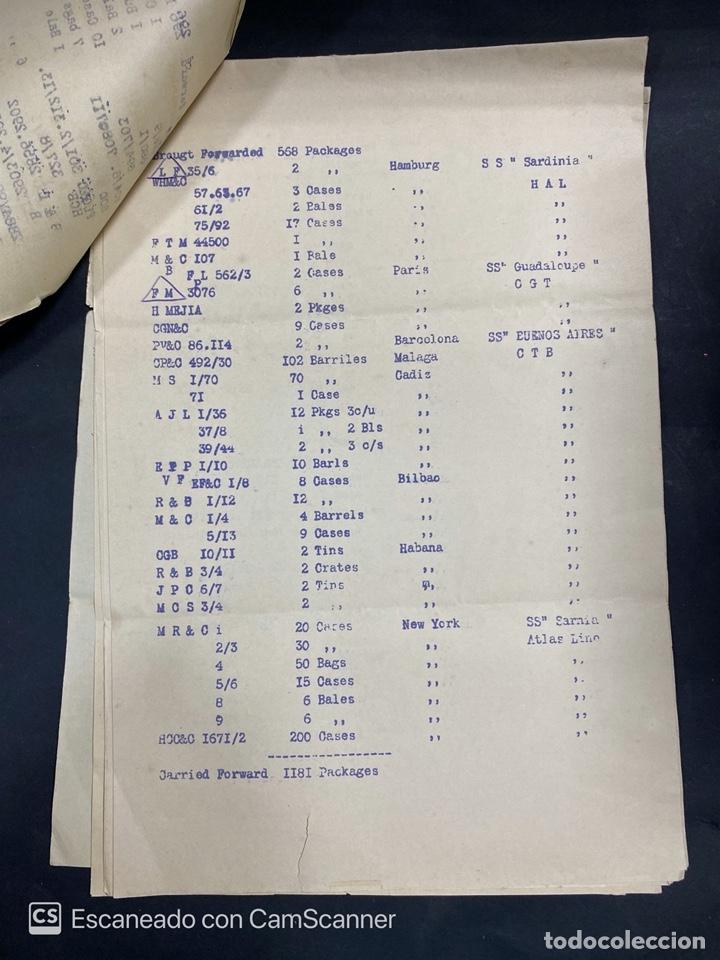 Brougt Forwarded 568 Packages
L F 35/6 2 ,, Hamburg S S " Sardinia "
WHM&C H A L
57.63.67 3 Cases ,, ,,
6I/2 2 Bales ,, ,,
75/92 I7 Cases ,, ,,
F T M 44500 I ,, ,, ,,
M & C I07 I Bale ,, ,,
B F L 562/3 2 Cases Paris SS" Guadaloupe "
P
F M 3076 6 ,, ,, C G T
H MEJIA 2 Pkges ,, ,,
CGN&C 9 Cases ,, ,,
PV&C 86.II4 2 ,, Barcolona SS" BUENOS AIRES "
CP&C 492/30 I02 Barriles Malaga C T B
M S I/70 70 ,, Cadiz ,,
7I I Case ,, ,,
A J L I/36 I2 Pkgs 3c/u ,, ,,
37/8 i ,, 2 Bls ,, ,,
39/44 2 ,, 3 c/s ,, ,,
I/I0 I0 Barls ,, ,,
V F EF&C I/8 8 Cases Bilbao ,,
R & B I/I2 I2 ,, ,, ,,
M & C I/4 4 Barrels ,, ,,
5/I3 9 Cases ,, ,,
CGB I0/II 2 Tins Habana ,,
R & B 3/4 2 Crates ,, ,,
J P C 6/7 2 Tins ,, ,,
M C S 3/4 2 ,, ,, ,,
M R & C i 20 Cases New York SS" Sarnia "
2/3 30 ,, ,, Atlas Line
4 50 Bags ,, ,,
5/6 I5 Cases ,, ,,
8 6 Bales ,, ,,
9 6 ,, ,, ,,
HCC&C I67I/2 200 Cases ,, ,,
-------------------
Carried Forward II8I Packages
CS Escaneado con CamScanner
todocoleccion